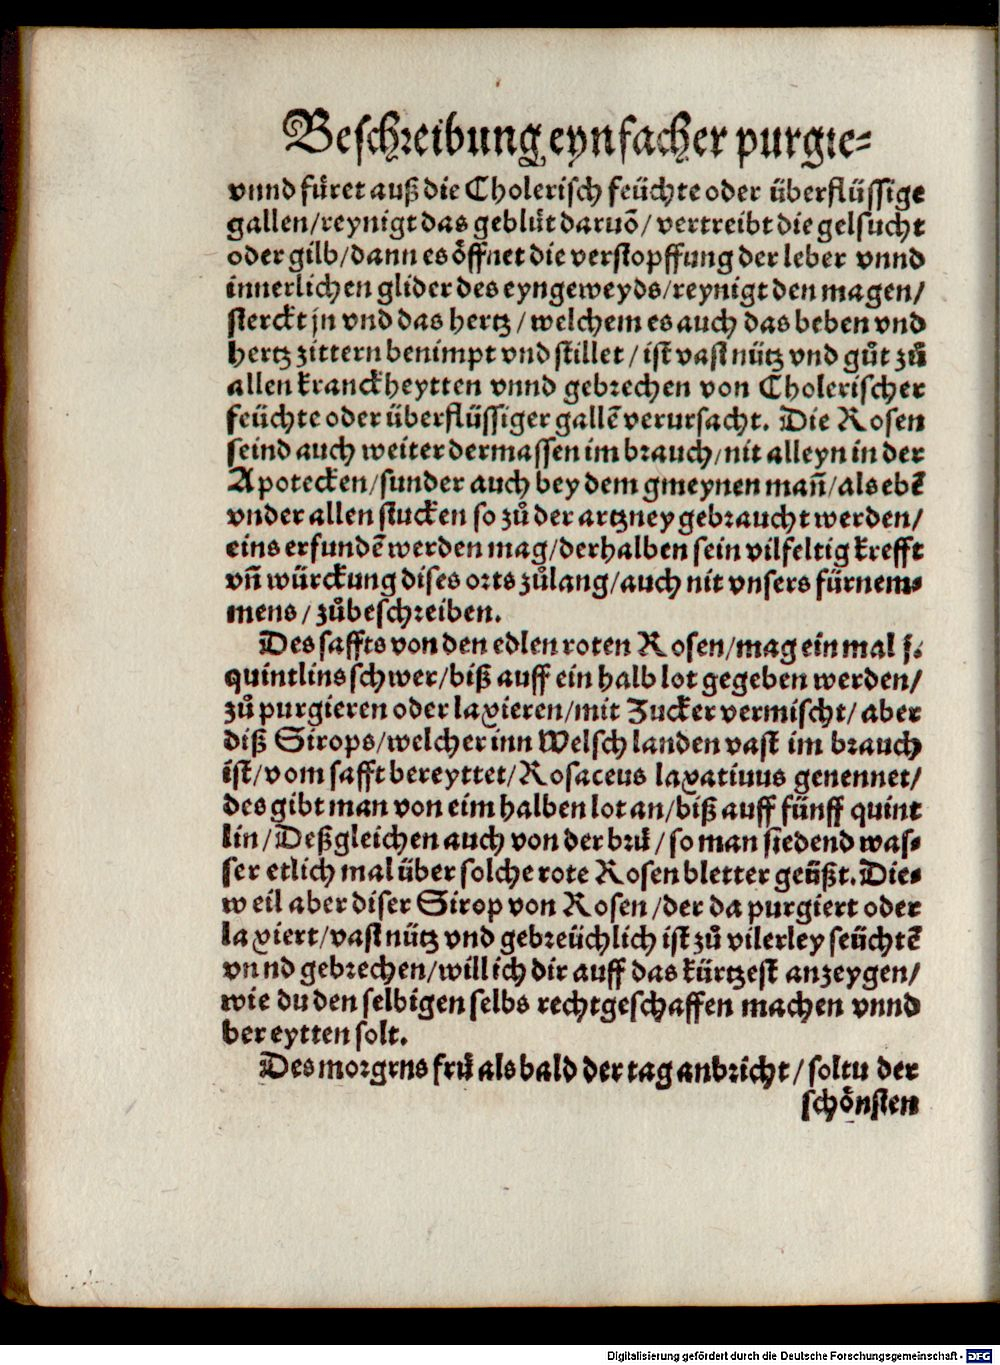 Beſchreibung eynfacher purgie⸗
vnnd fuͤret auß die Choleriſch feüchte oder überflüſſige
gallen/reynigt das gebluͤt daruõ/ vertreibt die gelſucht
oder gilb/dann es oͤffnet die verſtopffung der leber vnnd
innerlichen glider des eyngeweyds/reynigt den magen/
ſterckt jn vnd das hertz/ welchem es auch das beben vnd
hertz zittern benimpt vnd ſtillet/ iſt vaſt nütz vnd guͦt zuͦ
allen kranckheytten vnnd gebrechen von Choleriſcher
feüchte oder überflüſſiger gallẽ verurſacht. Die Roſen
ſeind auch weiter dermaſſen im brauch/nit alleyn in der
Apotecken/ſunder auch bey dem gmeynen mañ/als ebẽ
vnder allen ſtucken ſo zuͦ der artzney gebraucht werden/
eins erfundẽ werden mag/derhalben ſein vilfeltig krefft
vñ würckung diſes orts zuͦlang/auch nit vnſers fürnem⸗
mens/ zuͦbeſchreiben.
Des ſaffts von den edlen roten Roſen/mag ein mal j.
quintlins ſchwer/biß auff ein halb lot gegeben werden/
zuͦ purgieren oder laxieren/mit Zucker vermiſcht/ aber
diß Sirops/welcher inn Welſch landen vaſt im brauch
iſt/vom ſafft bereyttet/Roſaceus laxatiuus genennet/
des gibt man von eim halben lot an/biß auff fünff quint
lin/Deßgleichen auch von der bruͤ/ ſo man ſiedend waſ⸗
ſer etlich mal über ſolche rote Roſen bletter geüßt. Die⸗
weil aber diſer Sirop von Roſen/der da purgiert oder
laxiert/vaſt nütz vnd gebreüchlich iſt zuͦ vilerley ſeüchtẽ
vnnd gebrechen/will ich dir auff das kürtzeſt anzeygen/
wie du den ſelbigen ſelbs rechtgeſchaffen machen vnnd
bereytten ſolt.
Des morgens fruͤ als bald der tag anbricht/ ſoltu der
ſchoͤnſten
Digitalisierung gefördert durch die Deutsche Forschungsgemeinschaft - DFG